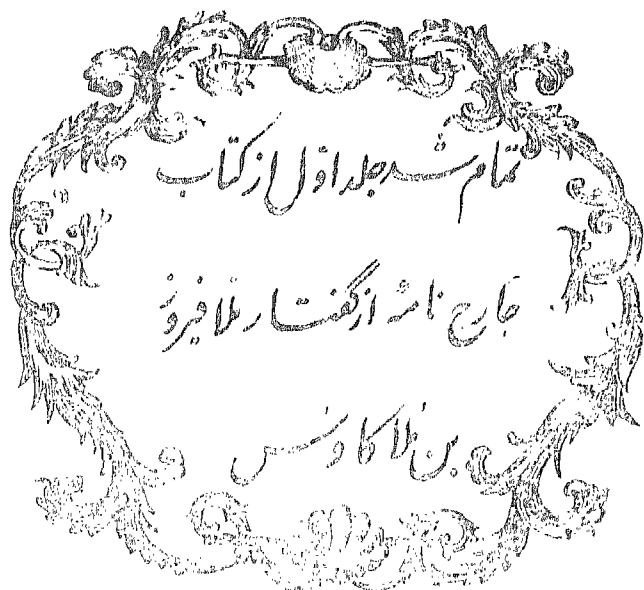 تمام شد جلد اوّل از کتاب
جارج نامهٔ از گفتار ملّا فیروز
بن ملّا کاوس